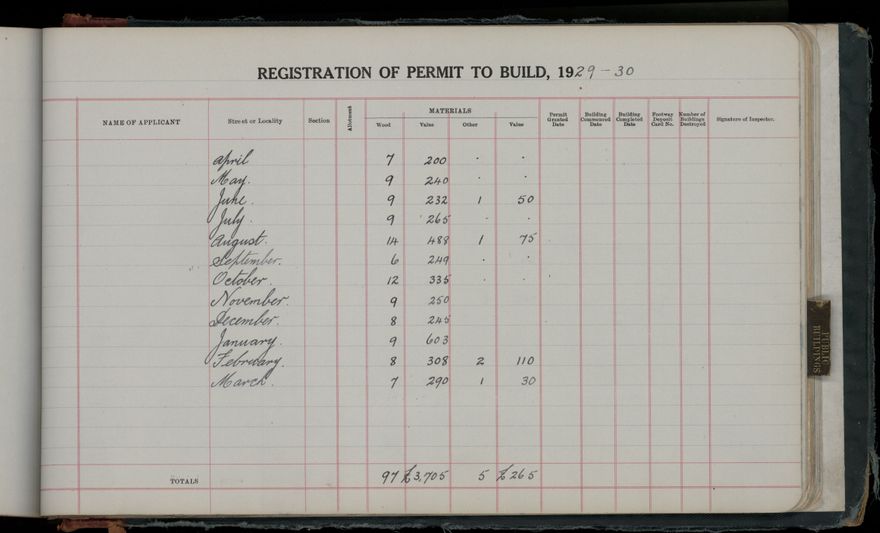 REGISTRATION OF PERMIT TO BUILD, 1929-30
NAME OF APPLICANT Street or Locality Section Allotment MATERIALS Wood Value Other Value Permit Granted Date Building Commenced Date Building Completed Date Footway Deposit Card No. Number of Buildings Destroyed Signature of Inspector.
April 7 200 . .
May. 9 240 . .
June. 9 232 1 50
July. 9 265 . .
August. 14 488 1 75
September. 6 249 . .
October. 12 335 . .
November. 9 250
December. 8 245
January. 9 603
February. 8 308 2 110
March. 7 290 1 30
TOTALS 97 £3,705 5 £265
PUBLIC BUILDINGS